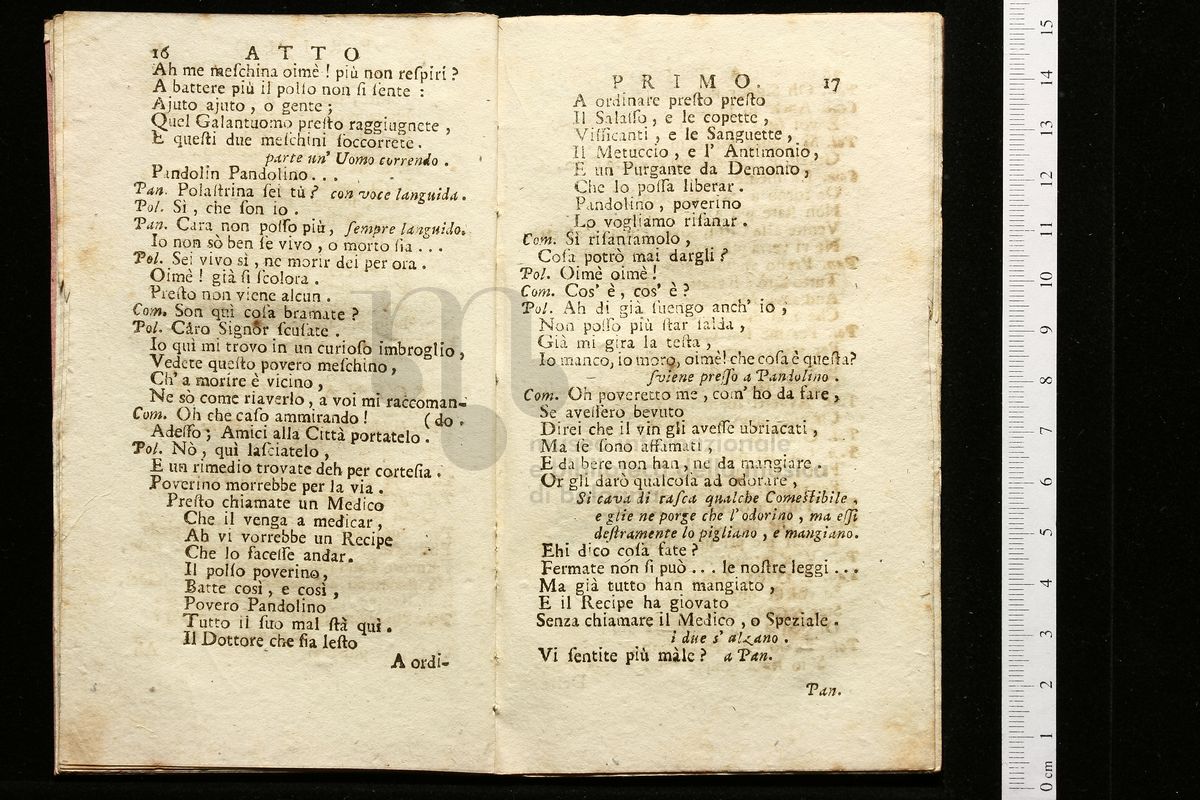 16 ATTO
Ah me meſchina oimè ! più non reſpiri ?
A battere più il polſo non ſi ſente :
Ajuto ajuto , o gente ;
Quel Galantuomo preſto raggiugnete ,
E queſti due meſchini ſoccorrete .
parte un' Uomo correndo .
Pandolin Pandolino . . .
Pan. Polaſtrina ſei tù ? con voce languida .
Pol. Sì , che ſon io .
Pan. Cara non poſſo più , ſempre languido.
Io non sò ben ſe vivo , o morto ſia . . .
Pol. Sei vivo sì , ne morir dei per ora .
Oimè ! già ſi ſcolora .
Preſto non viene alcun .
Com. Son quì coſa bramate ?
Pol. Caro Signor ſcuſate .
Io quì mi trovo in un curioſo imbroglio ,
Vedete queſto povero meſchino ,
Ch' a morire è vicino ,
Ne sò come riaverlo , a voi mi raccoman-
Com. Oh che caſo ammirando ! (do .
Adeſſo ; Amici alla Città portatelo .
Pol. Nò , quì laſciatelo ,
E un rimedio trovate deh per corteſia .
Poverino morrebbe per la via .
Preſto chiamate un Medico
Che il venga a medicar ,
Ah vi vorrebbe un Recipe
Che lo faceſſe andar .
Il polſo poverino ,
Batte così , e così ,
Povero Pandolino
Tutto il ſuo mal ſtà quì .
Il Dottore che ſia leſto
A ordi-
PRIMO. 17
A ordinare preſto preſto
Il Salaſſo , e le copette ,
Viſſicanti , e le Sanguette ,
Il Metuccio , e l' Antimonio ,
E un Purgante da Demonio ,
Che lo poſſa liberar .
Pandolino , poverino
Lo vogliamo riſanar .
Com. Sì riſaniamolo ,
Coſa potrò mai dargli ?
Pol. Oimè oimè !
Com. Cos' è , cos' è ?
Pol. Ah di già ſuengo anch' io ,
Non poſſo più ſtar ſalda ,
Già mi gira la teſta ,
Io manco, io moro, oimè! che coſa è queſta?
ſviene preſſo a Pandolino .
Com. Oh poveretto me , com' ho da fare ,
Se aveſſero bevuto
Direi che il vin gli aveſſe ubriacati ,
Ma ſe ſono affamati ,
E da bere non han , ne da mangiare .
Or gli darò qualcoſa ad odorare ,
Si cava di taſca qualche Comeſtibile ,
e glie ne porge che l' odorino , ma eſſi
deſtramente lo pigliano , e mangiano.
Ehi dico coſa fate ?
Fermate non ſi può . . . le noſtre leggi . . .
Ma già tutto han mangiato ,
E il Recipe ha giovato
Senza chiamare il Medico , o Speziale .
i due s' alzano .
Vi ſentite più màle ? a Pan.
Pan.
0 cm 1 2 3 4 5 6 7 8 9 10 11 12 13 14 15